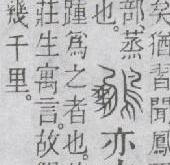 矣猶習聞鳳
部蒸
亦
也。
踵爲之者也。
莊生寓言。故
幾千里。